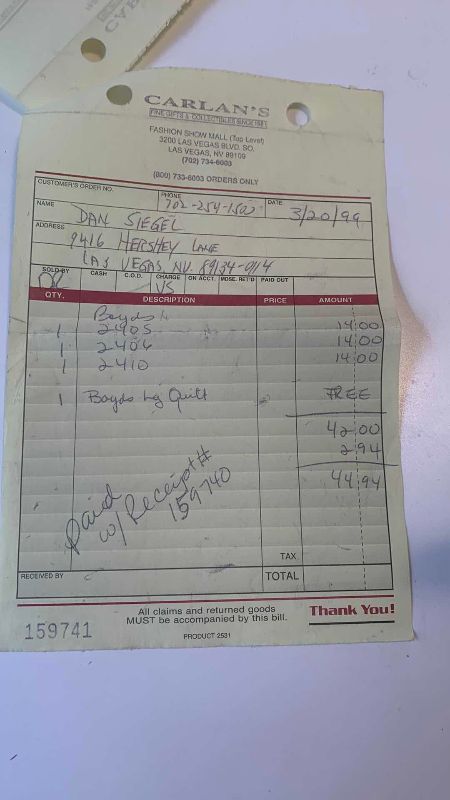 CARLAN'S
FINE GIFTS & COLLECTIBLES SINCE 1981
FASHION SHOW MALL (Top Level)
3200 LAS VEGAS BLVD. SO.
LAS VEGAS, NV 89109
(702) 734-6003
(800) 733-6003 ORDERS ONLY
CUSTOMER'S ORDER NO. PHONE 702-254-1502 DATE 3/20/99
NAME DAN SIEGEL
ADDRESS 9416 HERSHEY LANE
LAS VEGAS NV. 89134-0114
SOLD BY CASH C.O.D. CHARGE ON ACCT. MDSE. RET'D PAID OUT
VS
QTY. DESCRIPTION PRICE AMOUNT
Boyds
1 2405 14.00
1 2406 14.00
1 2410 14.00
1 Boyds Lg Quilt FREE
42.00
2.94
44.94
Paid
w/Receipt#
159740
TAX
RECEIVED BY TOTAL
159741
All claims and returned goods
MUST be accompanied by this bill.
Thank You!
PRODUCT 2531